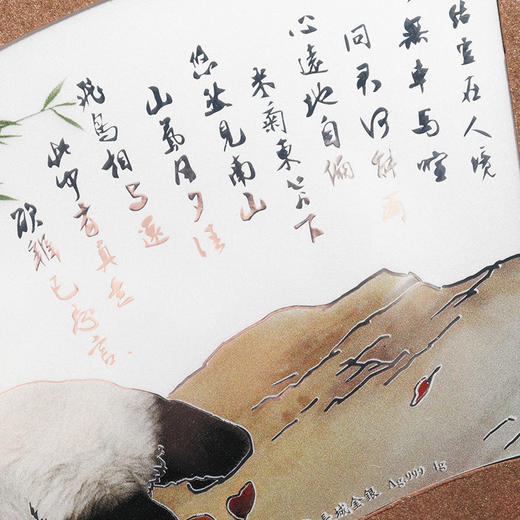 结庐在人境
无車馬喧
问君何能尔
心遠地自偏
采菊東篱下
悠然见南山
山氣日夕佳
飛鳥相与还
此中有真意
欲辨已忘言
長城金銀 Ag999 1g